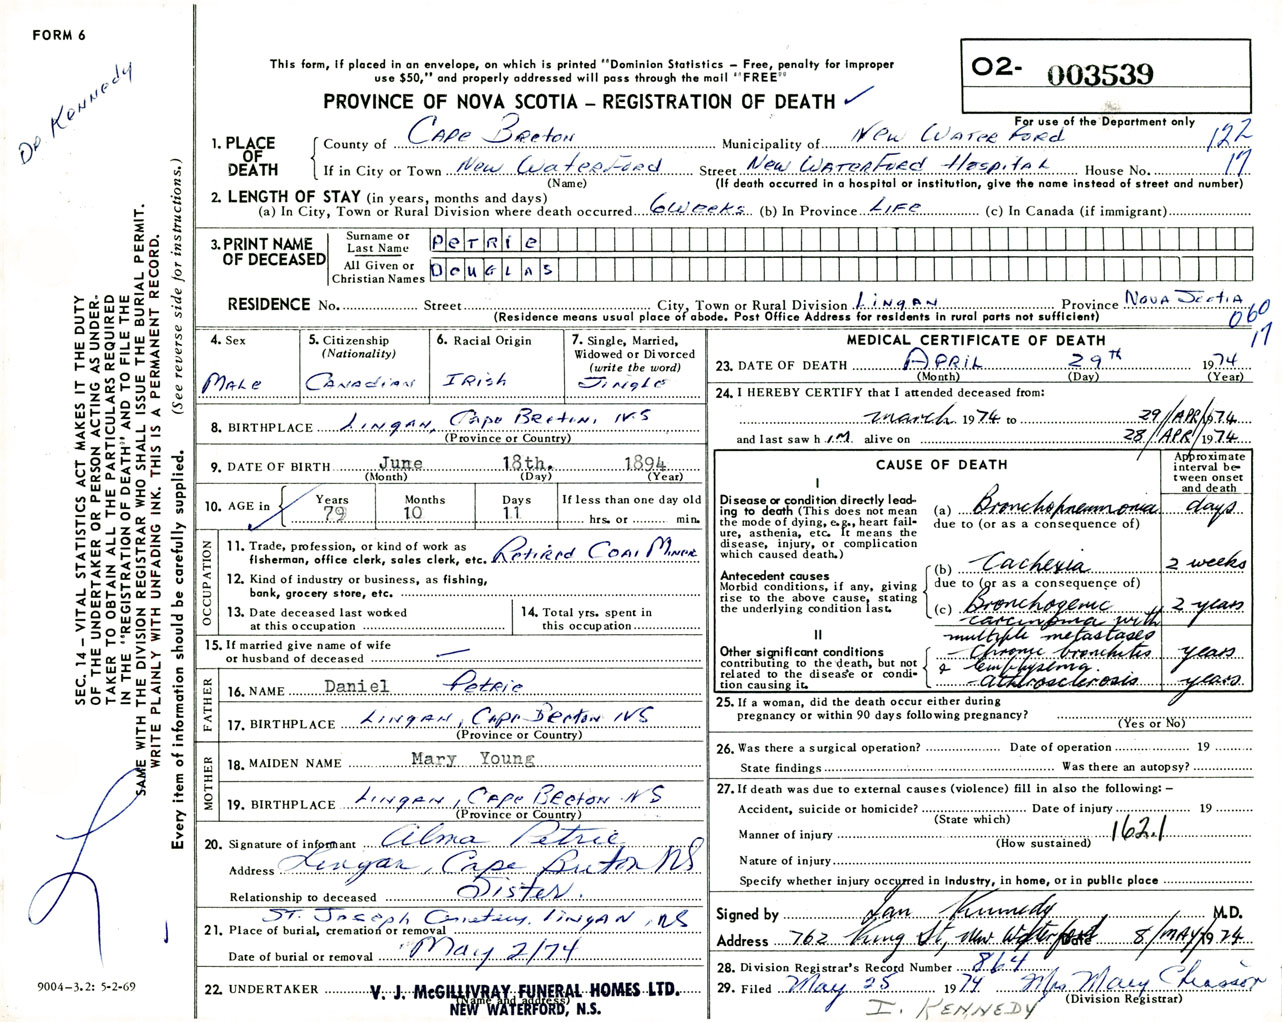 FORM 6
Dr Kennedy
This form, if placed in an envelope, on which is printed "Dominion Statistics – Free, penalty for improper
use $50," and properly addressed will pass through the mail "FREE"
PROVINCE OF NOVA SCOTIA – REGISTRATION OF DEATH ✓
O2- 003539
For use of the Department only
122
17
1. PLACE OF DEATH
County of Cape Breton Municipality of New Waterford
If in City or Town New Waterford Street New Waterford Hospital House No.
(Name) (If death occurred in a hospital or institution, give the name instead of street and number)
2. LENGTH OF STAY (in years, months and days)
(a) In City, Town or Rural Division where death occurred 6 weeks (b) In Province Life (c) In Canada (if immigrant)
3. PRINT NAME OF DECEASED
Surname or Last Name PETRIE
All Given or Christian Names DOUGLAS
RESIDENCE No. Street City, Town or Rural Division Lingan Province Nova Scotia
(Residence means usual place of abode. Post Office Address for residents in rural parts not sufficient)
060
17
4. Sex
Male
5. Citizenship
(Nationality)
Canadian
6. Racial Origin
Irish
7. Single, Married,
Widowed or Divorced
(write the word)
Single
8. BIRTHPLACE Lingan, Cape Breton, N.S
(Province or Country)
9. DATE OF BIRTH June 18th. 1894
(Month) (Day) (Year)
10. AGE in
Years Months Days If less than one day old
79 10 11 hrs. or min.
OCCUPATION
11. Trade, profession, or kind of work as
fisherman, office clerk, sales clerk, etc. Retired Coal Miner
12. Kind of industry or business, as fishing,
bank, grocery store, etc.
13. Date deceased last worked
at this occupation
14. Total yrs. spent in
this occupation
15. If married give name of wife
or husband of deceased —
FATHER
16. NAME Daniel Petrie
17. BIRTHPLACE Lingan, Cape Breton NS
(Province or Country)
MOTHER
18. MAIDEN NAME Mary Young
19. BIRTHPLACE Lingan, Cape Breton NS
(Province or Country)
20. Signature of informant Alma Petrie
Address Lingan, Cape Breton NS
Relationship to deceased Sister.
St. Joseph Cemetery, Lingan, NS
21. Place of burial, cremation or removal
Date of burial or removal May 2/74
22. UNDERTAKER V. J. McGILLIVRAY FUNERAL HOMES LTD.
(Name and address)
NEW WATERFORD, N.S.
MEDICAL CERTIFICATE OF DEATH
23. DATE OF DEATH April 29th 1974
(Month) (Day) (Year)
24. I HEREBY CERTIFY that I attended deceased from:
March 1974 to 29/APR/1974
and last saw him alive on 28/APR/1974
CAUSE OF DEATH
Approximate
interval be-
tween onset
and death
I
Disease or condition directly lead-
ing to death (This does not mean
the mode of dying, e.g., heart fail-
ure, asthenia, etc. It means the
disease, injury, or complication
which caused death.)
(a) Bronchopneumonia days
due to (or as a consequence of)
Antecedent causes
Morbid conditions, if any, giving
rise to the above cause, stating
the underlying condition last.
(b) Cachexia 2 weeks
due to (or as a consequence of)
(c) Bronchogenic 2 years
carcinoma with
multiple metastases
II
Other significant conditions
contributing to the death, but not
related to the disease or condi-
tion causing it.
Chronic bronchitis years
& Emphysema.
atherosclerosis years
25. If a woman, did the death occur either during
pregnancy or within 90 days following pregnancy?
(Yes or No)
26. Was there a surgical operation? Date of operation 19
State findings Was there an autopsy?
27. If death was due to external causes (violence) fill in also the following: –
Accident, suicide or homicide? Date of injury 19
(State which)
Manner of injury 162.1
(How sustained)
Nature of injury
Specify whether injury occurred in industry, in home, or in public place
Signed by Ian Kennedy M.D.
Address 762 King St, New Waterford Date 8/MAY/1974
28. Division Registrar's Record Number 864
29. Filed May 25 1974 Mrs Mary Chiasson
(Division Registrar)
I. KENNEDY
SEC. 14 – VITAL STATISTICS ACT MAKES IT THE DUTY
OF THE UNDERTAKER OR PERSON ACTING AS UNDER-
TAKER TO OBTAIN ALL THE PARTICULARS REQUIRED
IN THE "REGISTRATION OF DEATH" AND TO FILE THE
SAME WITH THE DIVISION REGISTRAR WHO SHALL ISSUE THE BURIAL PERMIT.
WRITE PLAINLY WITH UNFADING INK. THIS IS A PERMANENT RECORD.
Every item of information should be carefully supplied. (See reverse side for instructions.)
9004-3.2: 5-2-69